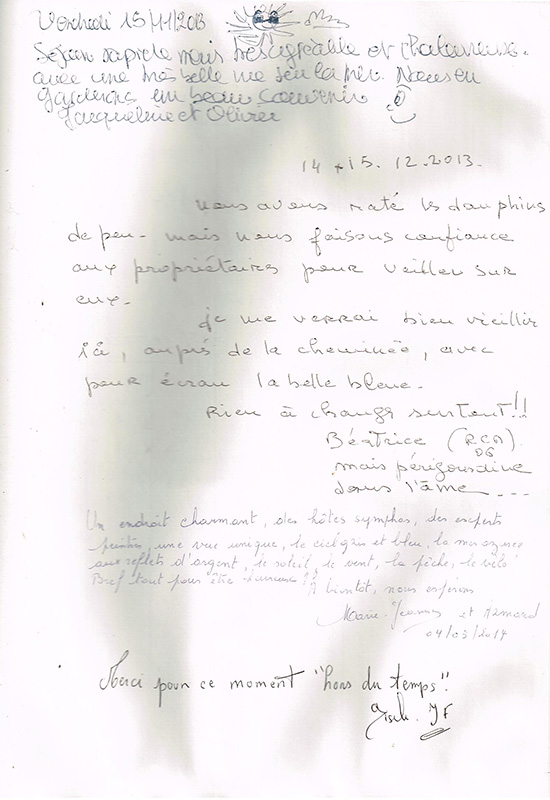 Vendredi 15/11/2013
Séjour rapide mais très agréable et chaleureux.
avec une très belle vue sur la mer. Nous en
garderons un beau souvenir
Jacqueline et Olivier
14 + 15. 12. 2013.
Nous avons raté les dauphins
de peu - mais nous faisons confiance
aux propriétaires pour veiller sur
eux.
je me verrai bien vieillir
ici, auprès de la cheminée, avec
pour écran la belle bleue.
Rien à changer surtout!!
Béatrice (RCA)
06
mais périgourdine
dans l'âme ---
Un endroit charmant, des hôtes symphas, des experts
peintres, une vue unique, le ciel gris et bleu, la mer
aux reflets d'argent, le soleil, le vent, la pêche, le vélo
Bref tout pour être heureux !! A bientôt, nous espérons
Marie-Jeanne et
04/03/2014
Merci pour ce moment "hors du temps".
Gisele. JF